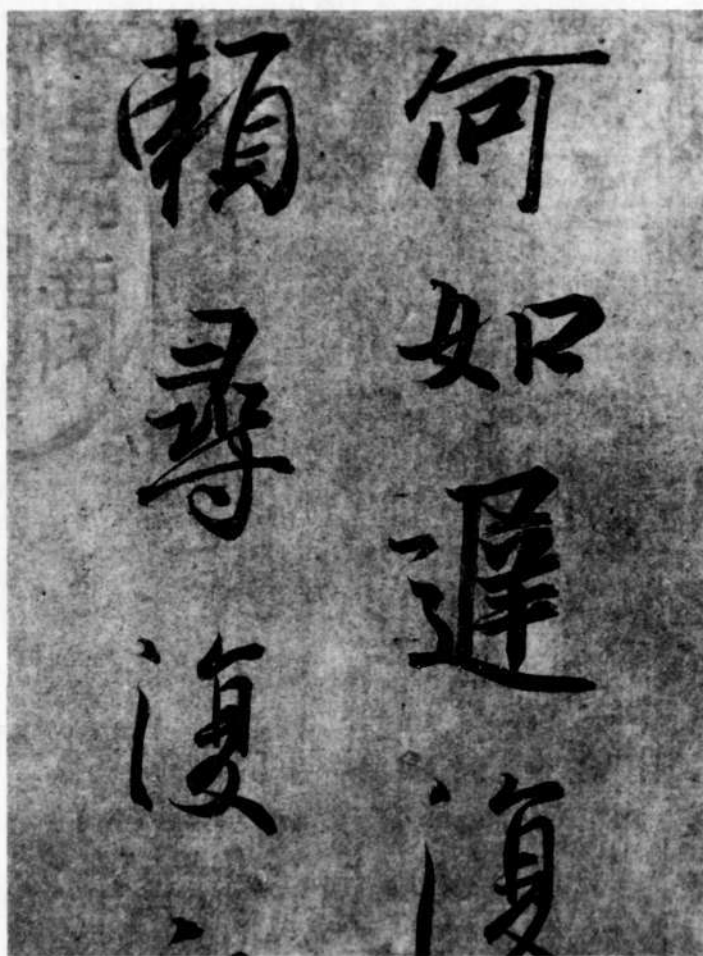 何如遲復
頼尋復